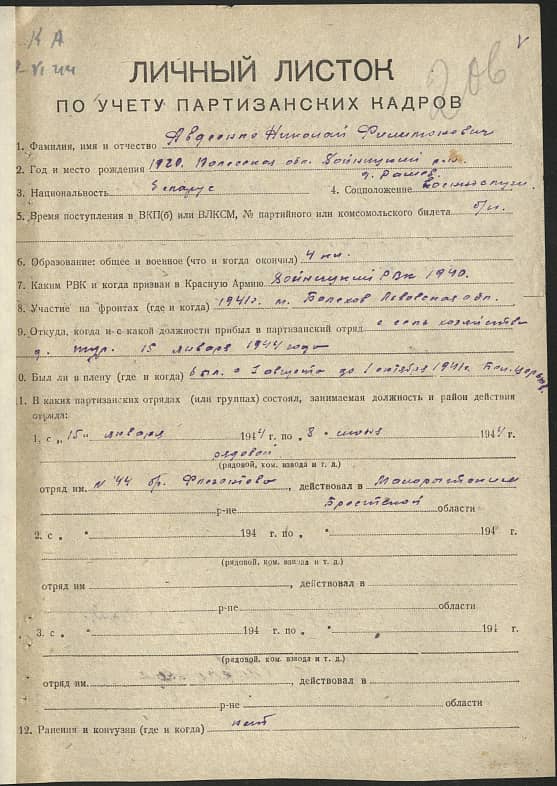 К А
VI 44
206
V
ЛИЧНЫЙ ЛИСТОК
ПО УЧЕТУ ПАРТИЗАНСКИХ КАДРОВ
1. Фамилия, имя и отчество Авдеенко Николай Филимонович
2. Год и место рождения 1920. Полесская обл. Хойницкий р-н
3. Национальность беларус 4. Соцположение
5. Время поступления в ВКП(б) или ВЛКСМ, № партийного или комсомольского билета б/п.
6. Образование: общее и военное (что и когда окончил) 4 кл.
7. Каким РВК и когда призван в Красную Армию Хойницкий РВК 1940.
8. Участие на фронтах (где и когда) 1941г. м. Болехов Львовская обл.
9. Откуда, когда и с какой должности прибыл в партизанский отряд с сель хозяйства
д. 15 января 1944 года
0. Был ли в плену (где и когда) был с августа до 1 октября 1941г.
1. В каких партизанских отрядах (или группах) состоял, занимаемая должность и район действия
отряда:
1. с „15" января 1944 г. по „8" июня 1944 г.
рядовой
(рядовой, ком. взвода и т. д.)
отряд им. № 44 бр. , действовал в
р-не Брестской области
2. с „ " 194 г. по „ " 194 г.
(рядовой, ком. взвода и т. д.)
отряд им , действовал в
р-не области
3. с „ " 194 г. по „ " 194 г.
(рядовой, ком. взвода и т. д.)
отряд им. , действовал в
р-не области
12. Ранения и контузии (где и когда) нет